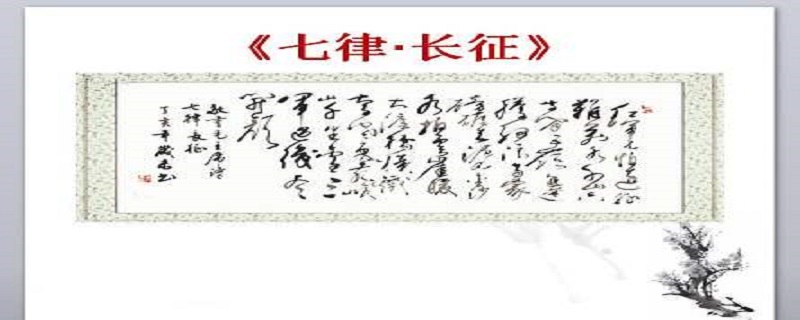 《七律·长征》
红军不怕远征
难万水千山只
等闲五岭逶迤
腾细浪乌蒙
磅礴走泥丸金沙
水拍云崖暖
大渡桥横铁
索寒更喜岷
山千里雪三
军过后尽
开颜
敬书毛主席诗
七律长征
丁亥年